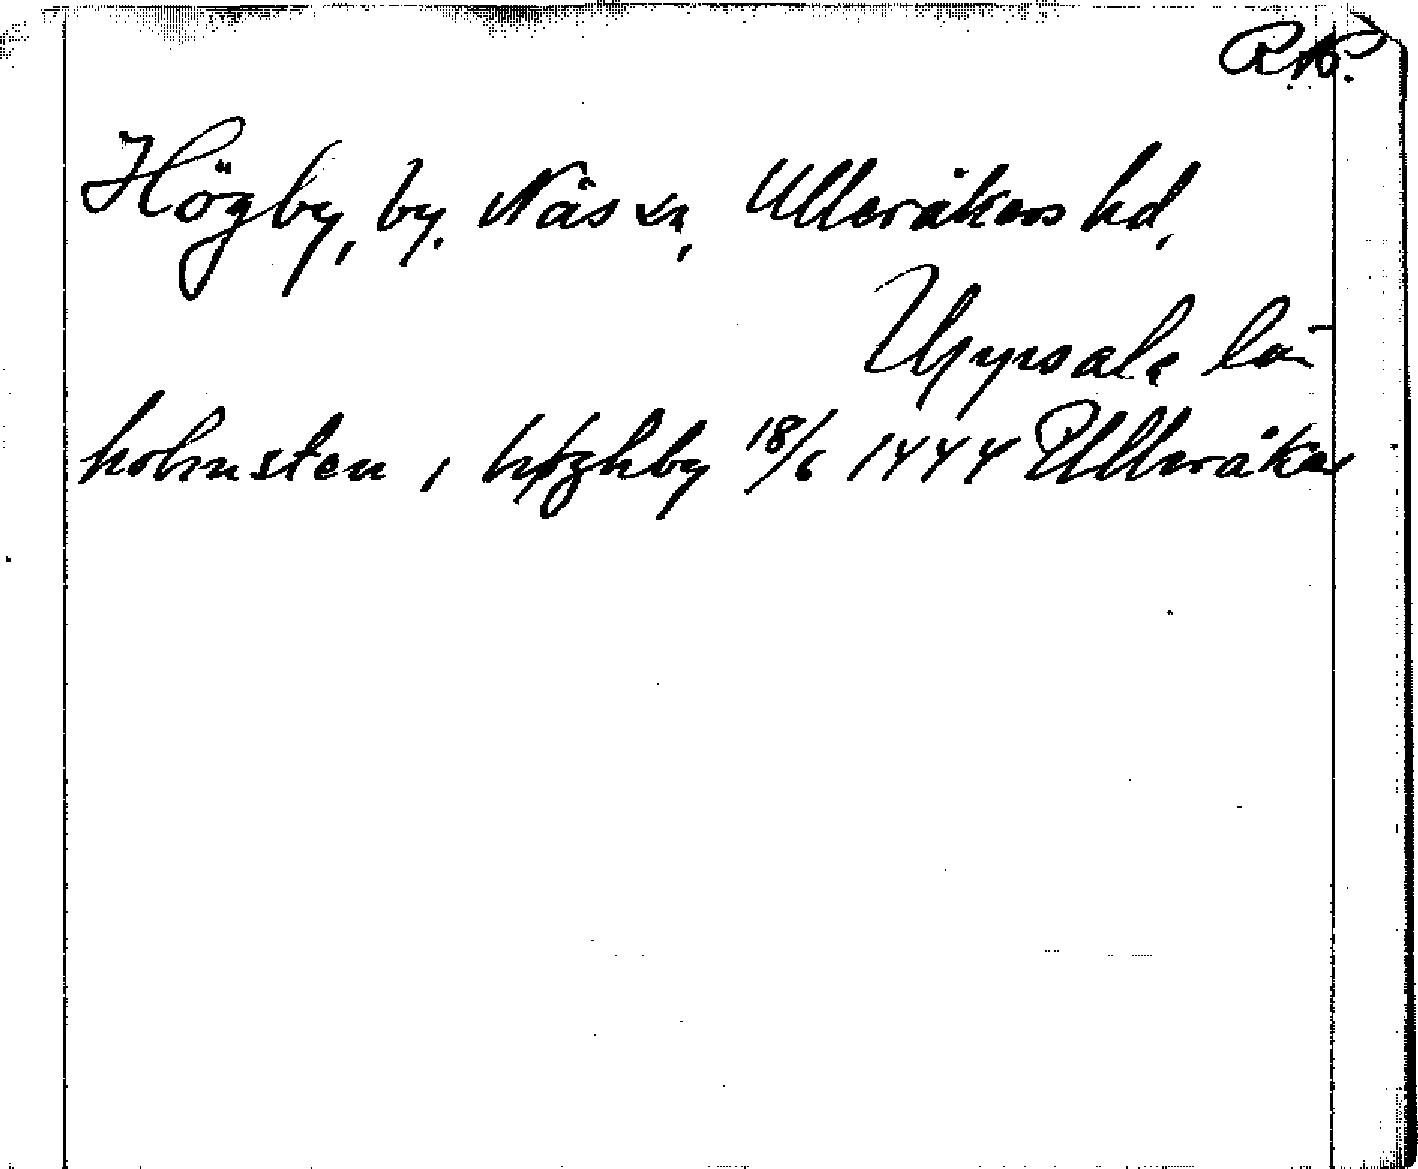 R.Ap.
Högby, by. Näs sn, Ulleråkers hd,
Uppsala län
holmsten i høghby 18/6 1444 Ulleråker